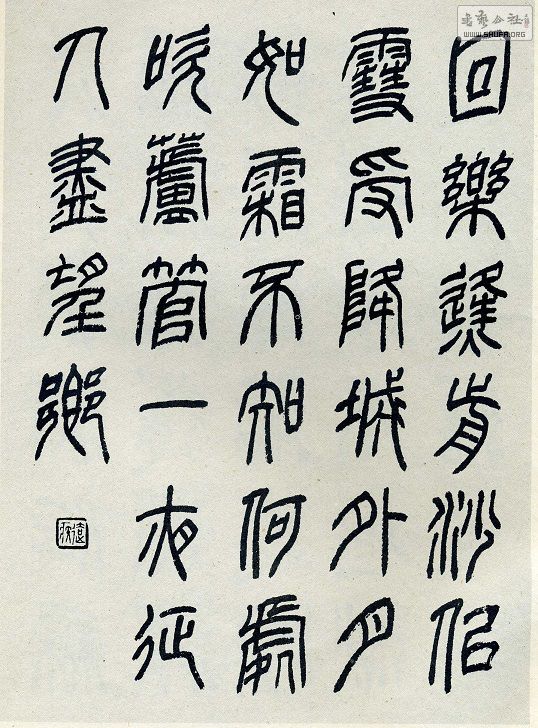 书艺公社
WWW.SHUFA.ORG
回樂烽前沙似
雪受降城外月
如霜不知何處
吹蘆管一夜征
人盡望鄉